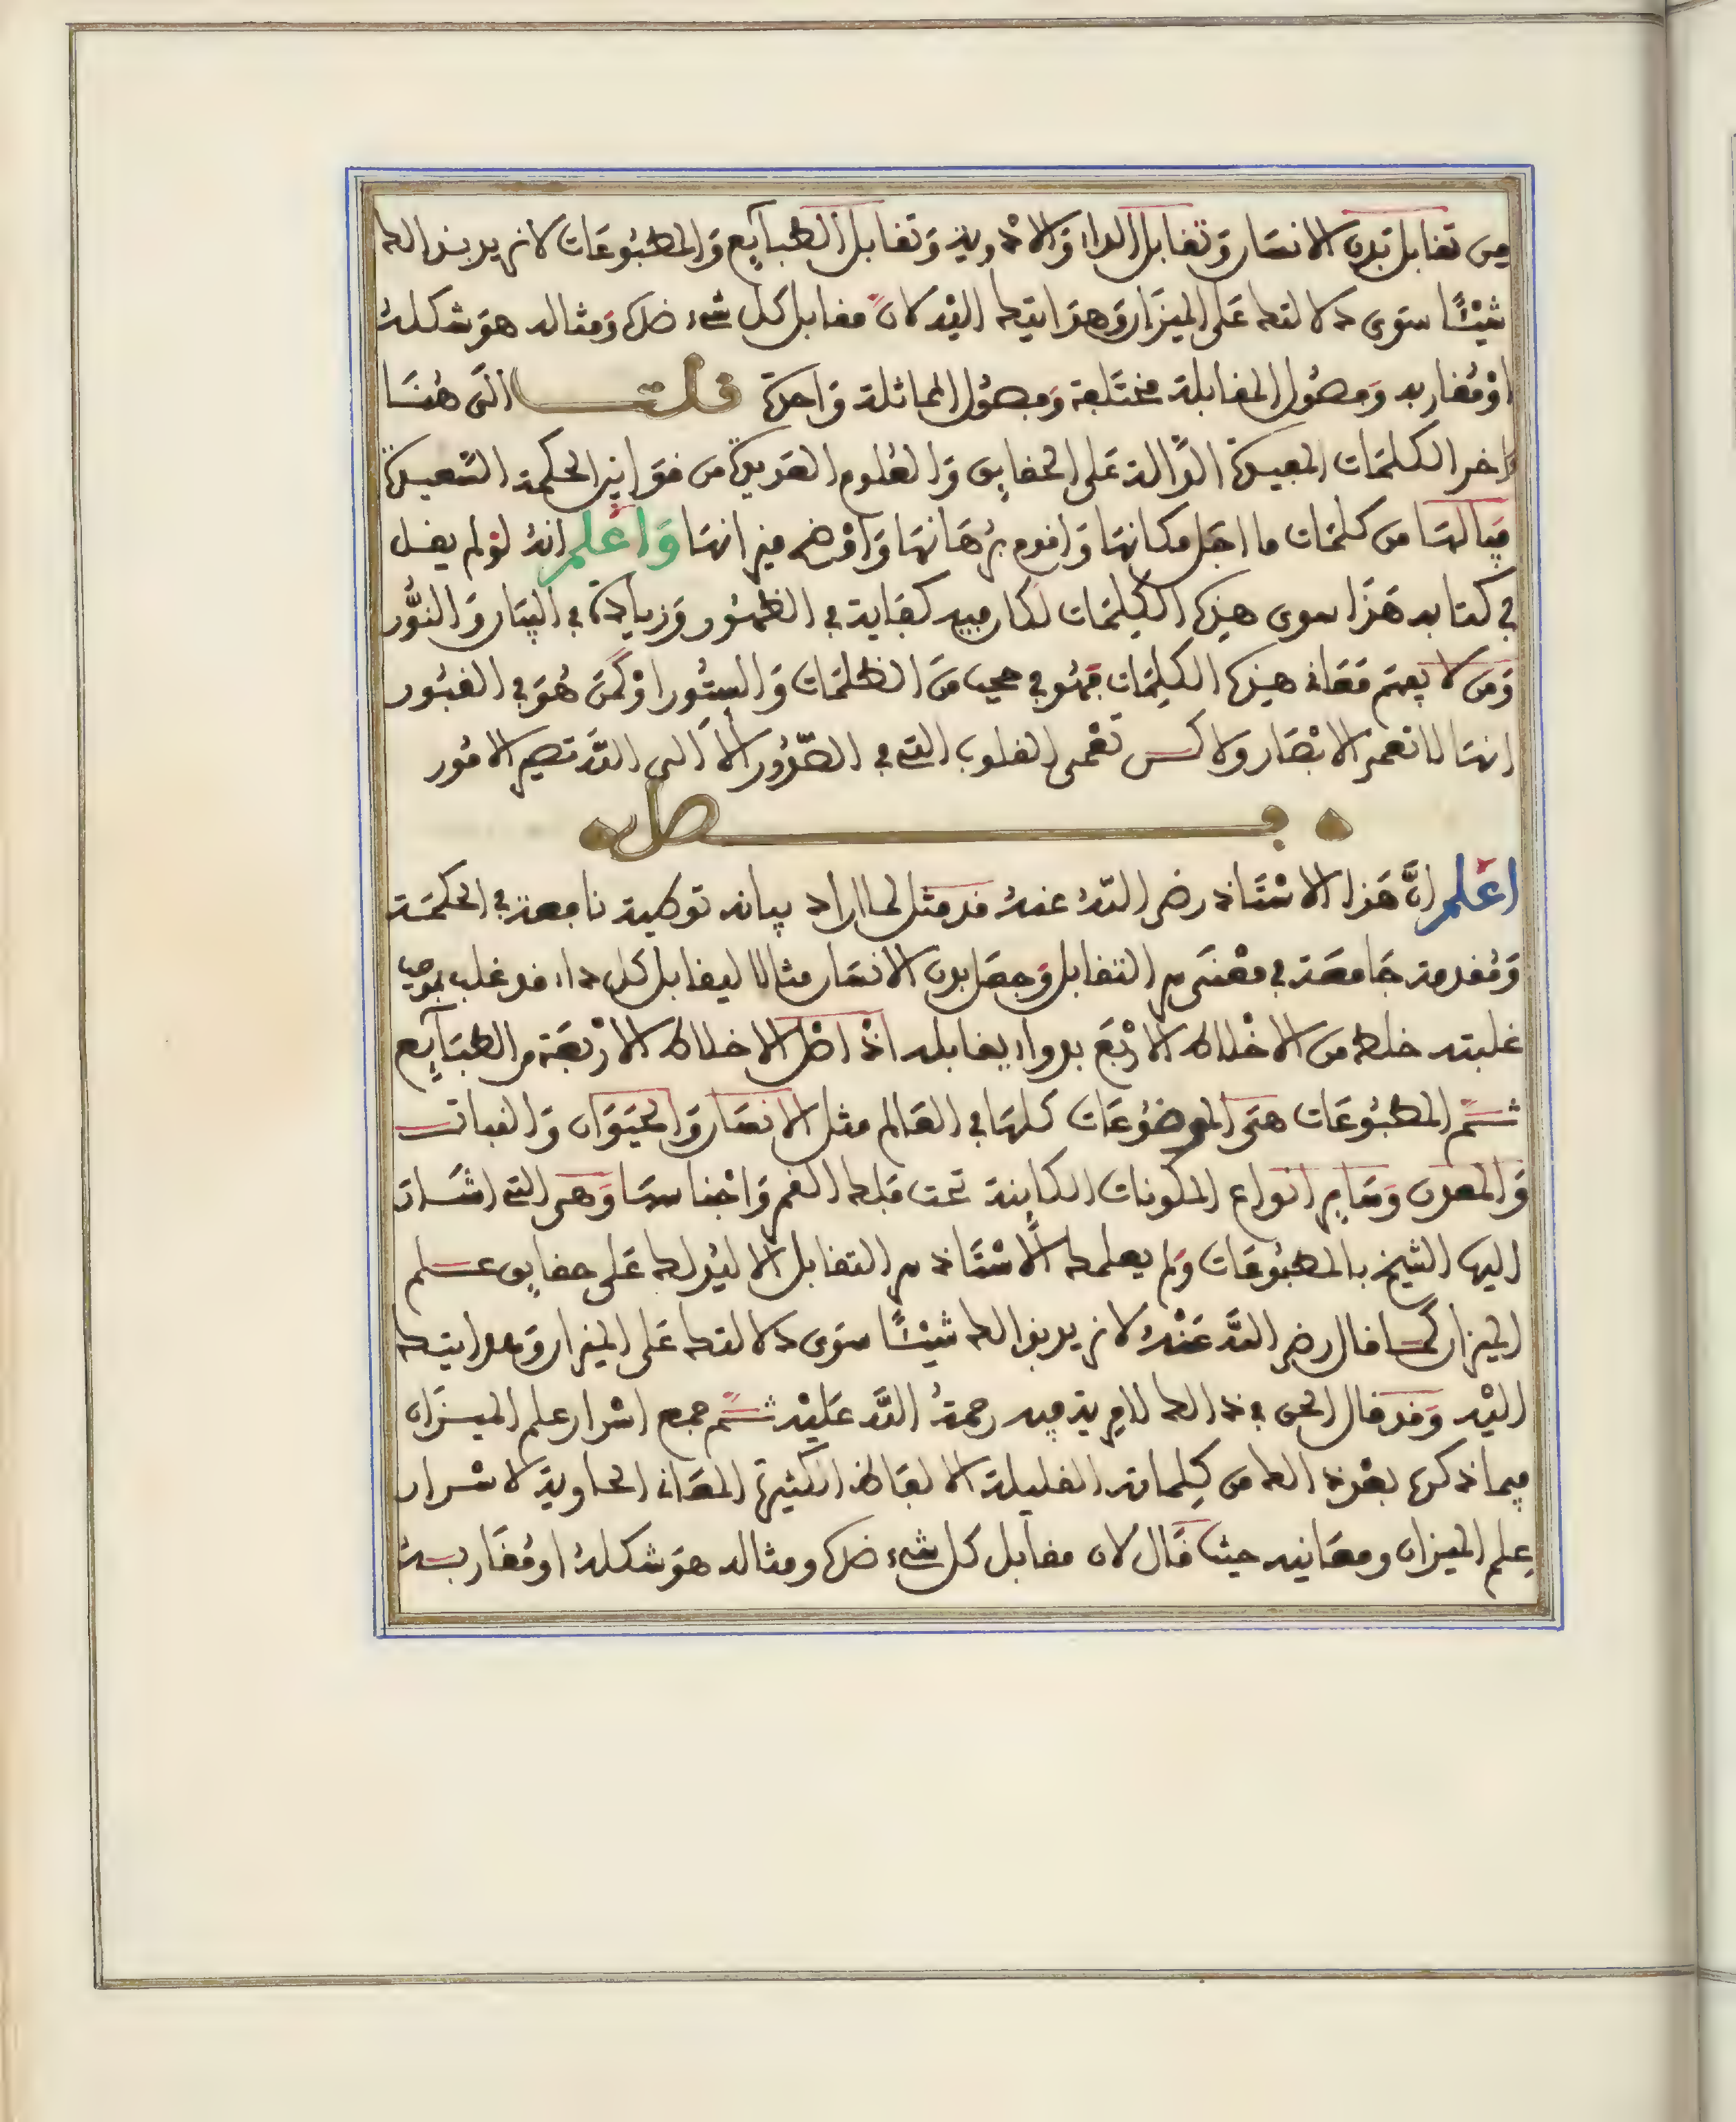 من تقابل بدن الانسان وتقابل الداء والادوية وتقابل الطبآيع والمطبوعات لا نريد بذالك
شيئًا سوى دلالتك على الميزان وهدايتك اليه لان مقابل كل شيء ضده ومثاله هو شكله
او مقاربه وفصول المقابلة مختلفة وفصول المماثلة واحدة قلت الى هنا
اخر الكلمات المفيدة الدالة على الحقايق والعلوم العديدة من قوانين الحكمة السعيدة
فيا لها من كلمات ما اجل مكانها واقوم برهانها واوضح ميزانها واعلم انه لو لم يقل
في كتابه هذا سوى هذه الكلمات لكان فيه كفاية في الظهور وزيادة في البيان والنور
ومن لا يفهم معاني هذه الكلمات فهو في حجب من الظلمات والستور او كمن هو في القبور
انها لا تعمى الابصار ولاكن تعمى القلوب التي في الصدور الا الى الله تصير الامور
فصل
اعلم ان هذا الاستاذ رضي الله عنه قد مثل لما اراد بيانه توطية نافعة في الحكمة
ومقدمة جامعة في معنى من التقابل وجعل بدن الانسان مثالا ليقابل كل داء قد غلب بموجب
غلبته خلط من الاخلاط الاربع بدواء يقابله اذ اصل الاخلاط الاربعة من الطبآيع
ثم المطبوعات هي الموضوعات كلها في العالم مثل الانسان والحيوان والنبات
والمعدن وساير انواع المكونات الكاينة تحت فلك القمر واجناسها وهي التي اشار
اليها الشيخ بالمطبوعات ولم يعلمك الاستاذ من التقابل الا ليدلك على حقايق علم
الميزان كما قال رضي الله عنه لا نريد بذالك شيئًا سوى دلالتك على الميزان وهدايتك
اليه وقد قال الحق في ذالك لا مرية فيه رحمة الله عليه ثم جمع اسرار علم الميزان
فيما ذكره بعد ذالك من كلماته القليلة الالفاظ الكثيرة المعاني الحاوية لاسرار
علم الميزان ومعانيه حيث قال لان مقابل كل شيء ضده ومثاله هو شكله او مقاربه